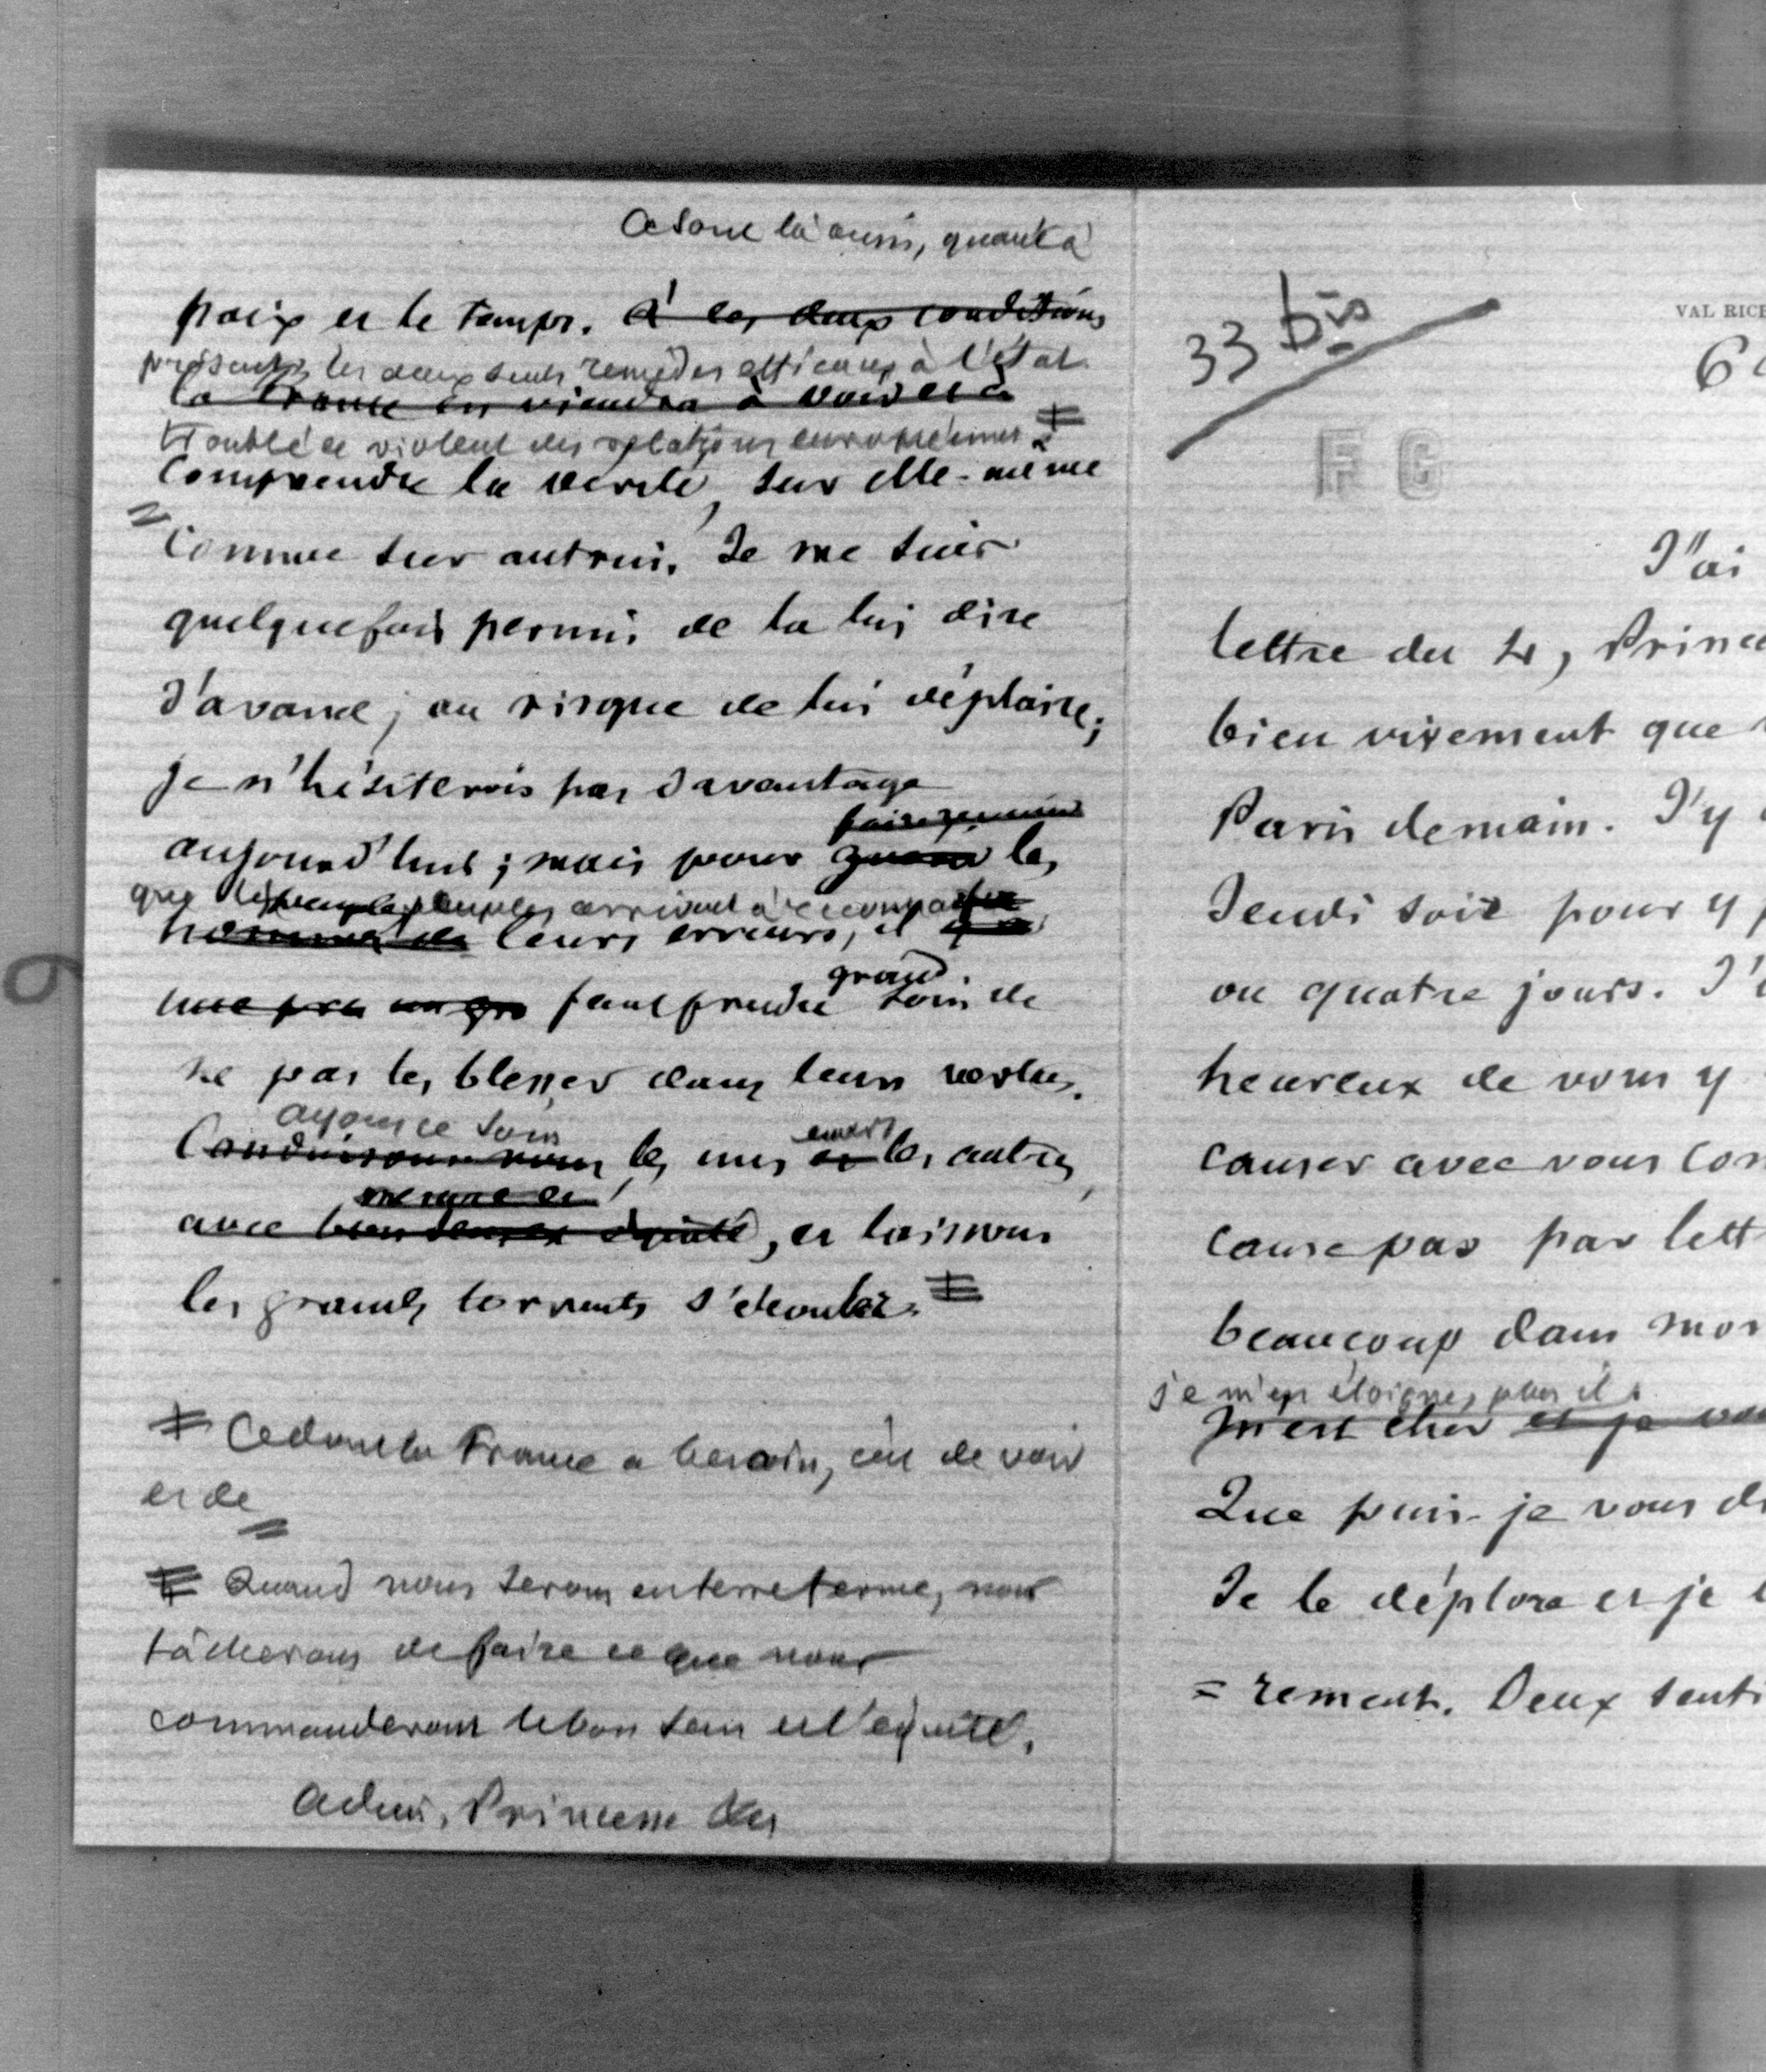 Ce sont là aussi, quant à
paix et le temps. A ces deux conditions
présent, les deux seuls remèdes efficaces à l'état
la France en viendra à voir et à
troublé et violent des relations européennes.
comprendre la vérité, sur elle-même
comme sur autrui. Je me suis
quelquefois permis de la lui dire
d'avance, au risque de lui déplaire;
je n'hésiterois pas davantage
aujourd'hui; mais pour quand les
que les peuples peuples arrivent à reconnaître
hommes de leurs erreurs, il y a
grand
faut prendre soin de
ne pas les blesser dans leurs vertus.
ayons ce soin
Conduisons nous les uns et les autres,
envers
mesure et
avec équité, et laissons
les grands torrents s'écouler.
Ce dont la France a besoin, c'est de voir
et de
Quand nous serons en terre ferme, nous
tâcherons de faire ce que nous
commanderont le bon sens et l'équité.
Adieu, Princesse des
33 bis
VAL RICH
6
F G
J'ai
lettre du 4, Prince
bien vivement que
Paris demain. J'y
Jeudi soir pour y p
ou quatre jours. J'
heureux de vous y
causer avec vous con
cause pas par lett
beaucoup dans mon
je m'en éloigne, plus il
m'est cher et je
Que puis-je vous d
Je le déplore et je
= rement. Deux senti